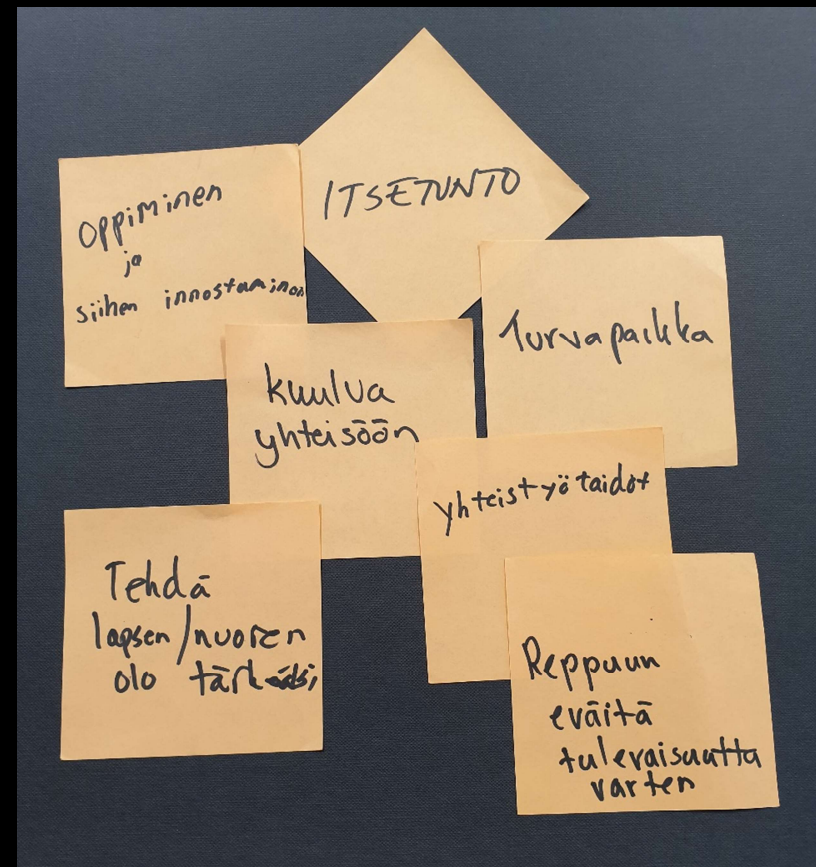 ITSETUNTO
Oppiminen
ja
siihen innostaminen
Turvapaikka
kuulua
yhteisöön
yhteistyötaidot
Tehdä
lapsen/nuoren
olo tärkeäksi
Reppuun
eväitä
tulevaisuutta
varten